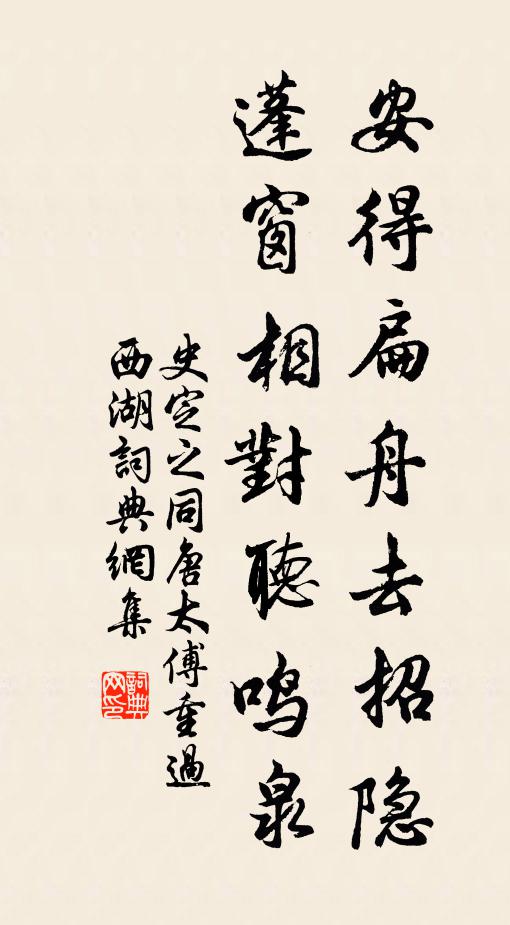 安得扁舟去招隐
蓬窗相對聽鸣泉
史定之同唐太傅重過
西湖詞典網集
詞典网印